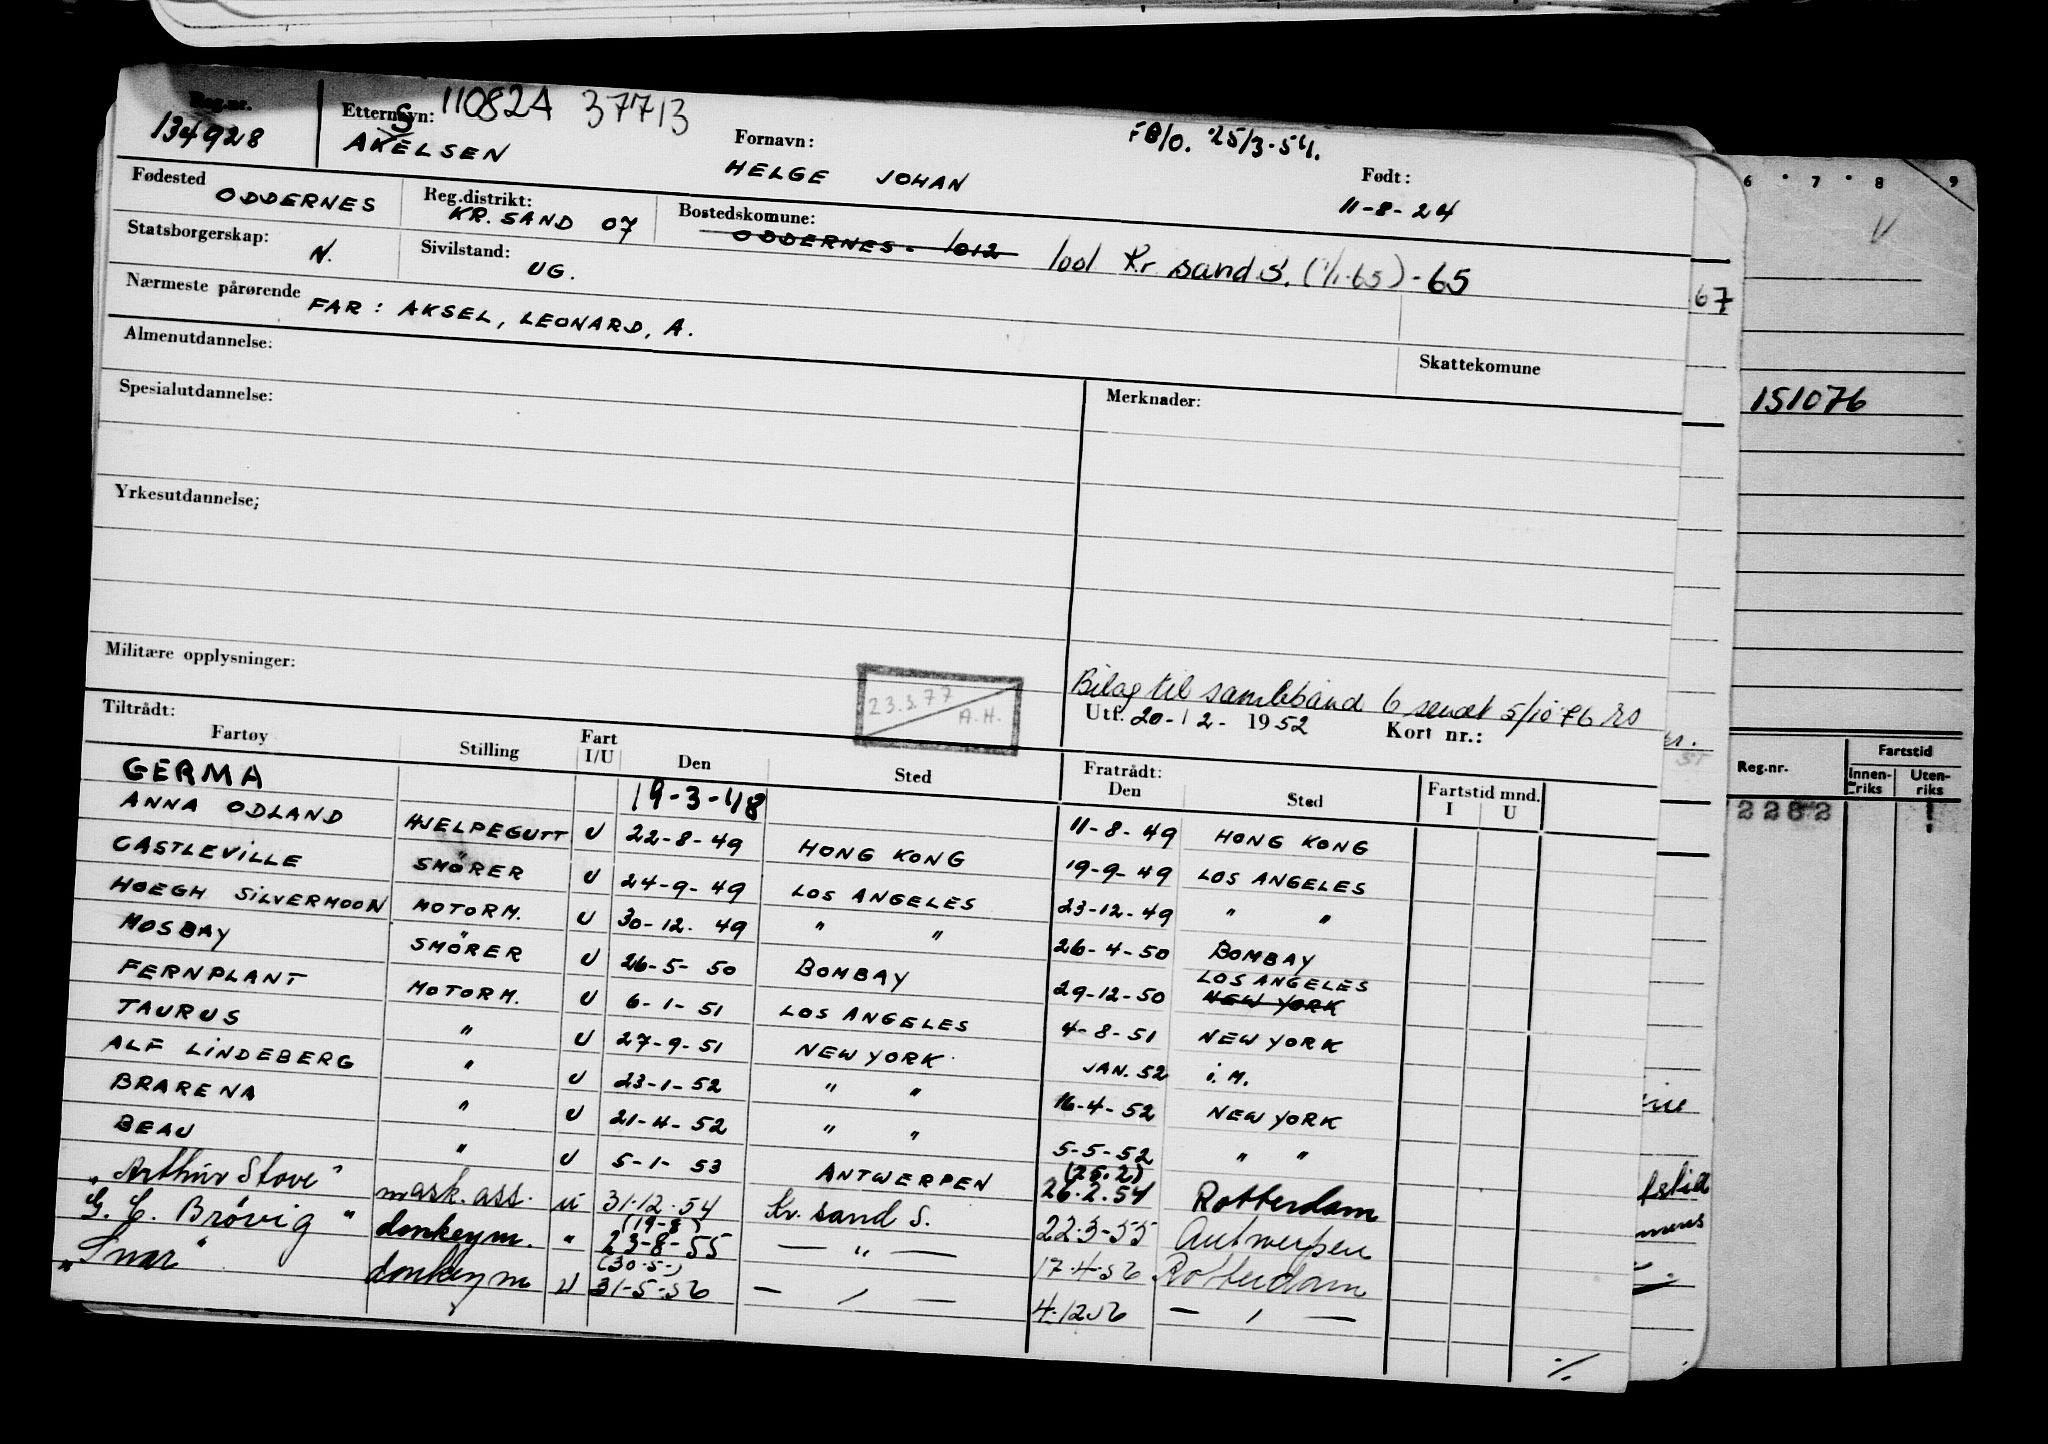 Reg.nr. 134928
Etternavn: 110824 37713
AKSELSEN
Fornavn: HELGE JOHAN
FB/O. 25/3-54.
Født: 11-8-24
Fødested ODDERNES
Reg.distrikt: KR. SAND 07
Bostedskomune: ODDERNES - 1012 1001 Kr sand S. (1/1-65) - 65
Statsborgerskap: N.
Sivilstand: UG.
Nærmeste pårørende FAR: AKSEL, LEONARD, A.
Skattekomune
Almenutdannelse:
Spesialutdannelse:
Merknader:
Yrkesutdannelse;
Militære opplysninger:
23.3.77 A.H.
Bilag til samlebånd 6 sendt 5/10 76 RO
Utf. 20-12-1952 Kort nr.:
Tiltrådt: Fratrådt:
Fartøy Stilling Fart I/U Den Sted Den Sted Fartstid mnd. I U
GERMA 19-3-48
ANNA ODLAND HJELPEGUTT U 22-8-49 HONG KONG 11-8-49 HONG KONG
CASTLEVILLE SMØRER U 24-9-49 LOS ANGELES 19-9-49 LOS ANGELES
HOEGH SILVERMOON MOTORM. U 30-12-49 " " 23-12-49 " "
MOSBAY SMØRER U 26-5-50 BOMBAY 26-4-50 BOMBAY
FERNPLANT MOTORM. U 6-1-51 LOS ANGELES 29-12-50 LOS ANGELES NEW YORK
TAURUS " U 27-9-51 NEW YORK 4-8-51 NEW YORK
ALF LINDEBERG " U 23-1-52 " " JAN. 52 i. M.
BRARENA " U 21-4-52 " " 16-4-52 NEW YORK
BEAU " U 5-1-53 ANTWERPEN 5-5-52 " "
"Arthur Stove" mask. ass. U 31.12.54 Kr. sand S. (25.2) 26.2.54 Rotterdam
G. C. Brøvig " donkeym. " (19-8) 23-8-55 — " — 22.3-55 Antwerpen
"Snar" donkeym U (30.5.) 31-5-56 — " — 17.4.56 Rotterdam
4.12.56 — " —
%
6 7 8 9
V
67
151076
Reg.nr. Fartstid
Innenriks Utenriks
2282